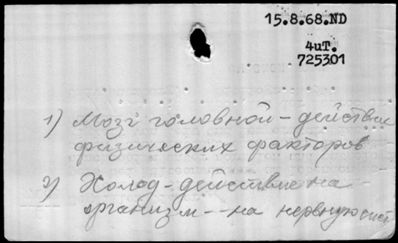 15.8.68.ND
4иТ.
725301
1) Мозг головной - действие
физических факторов
2) Холод - действие на
организм - - на нервную сист